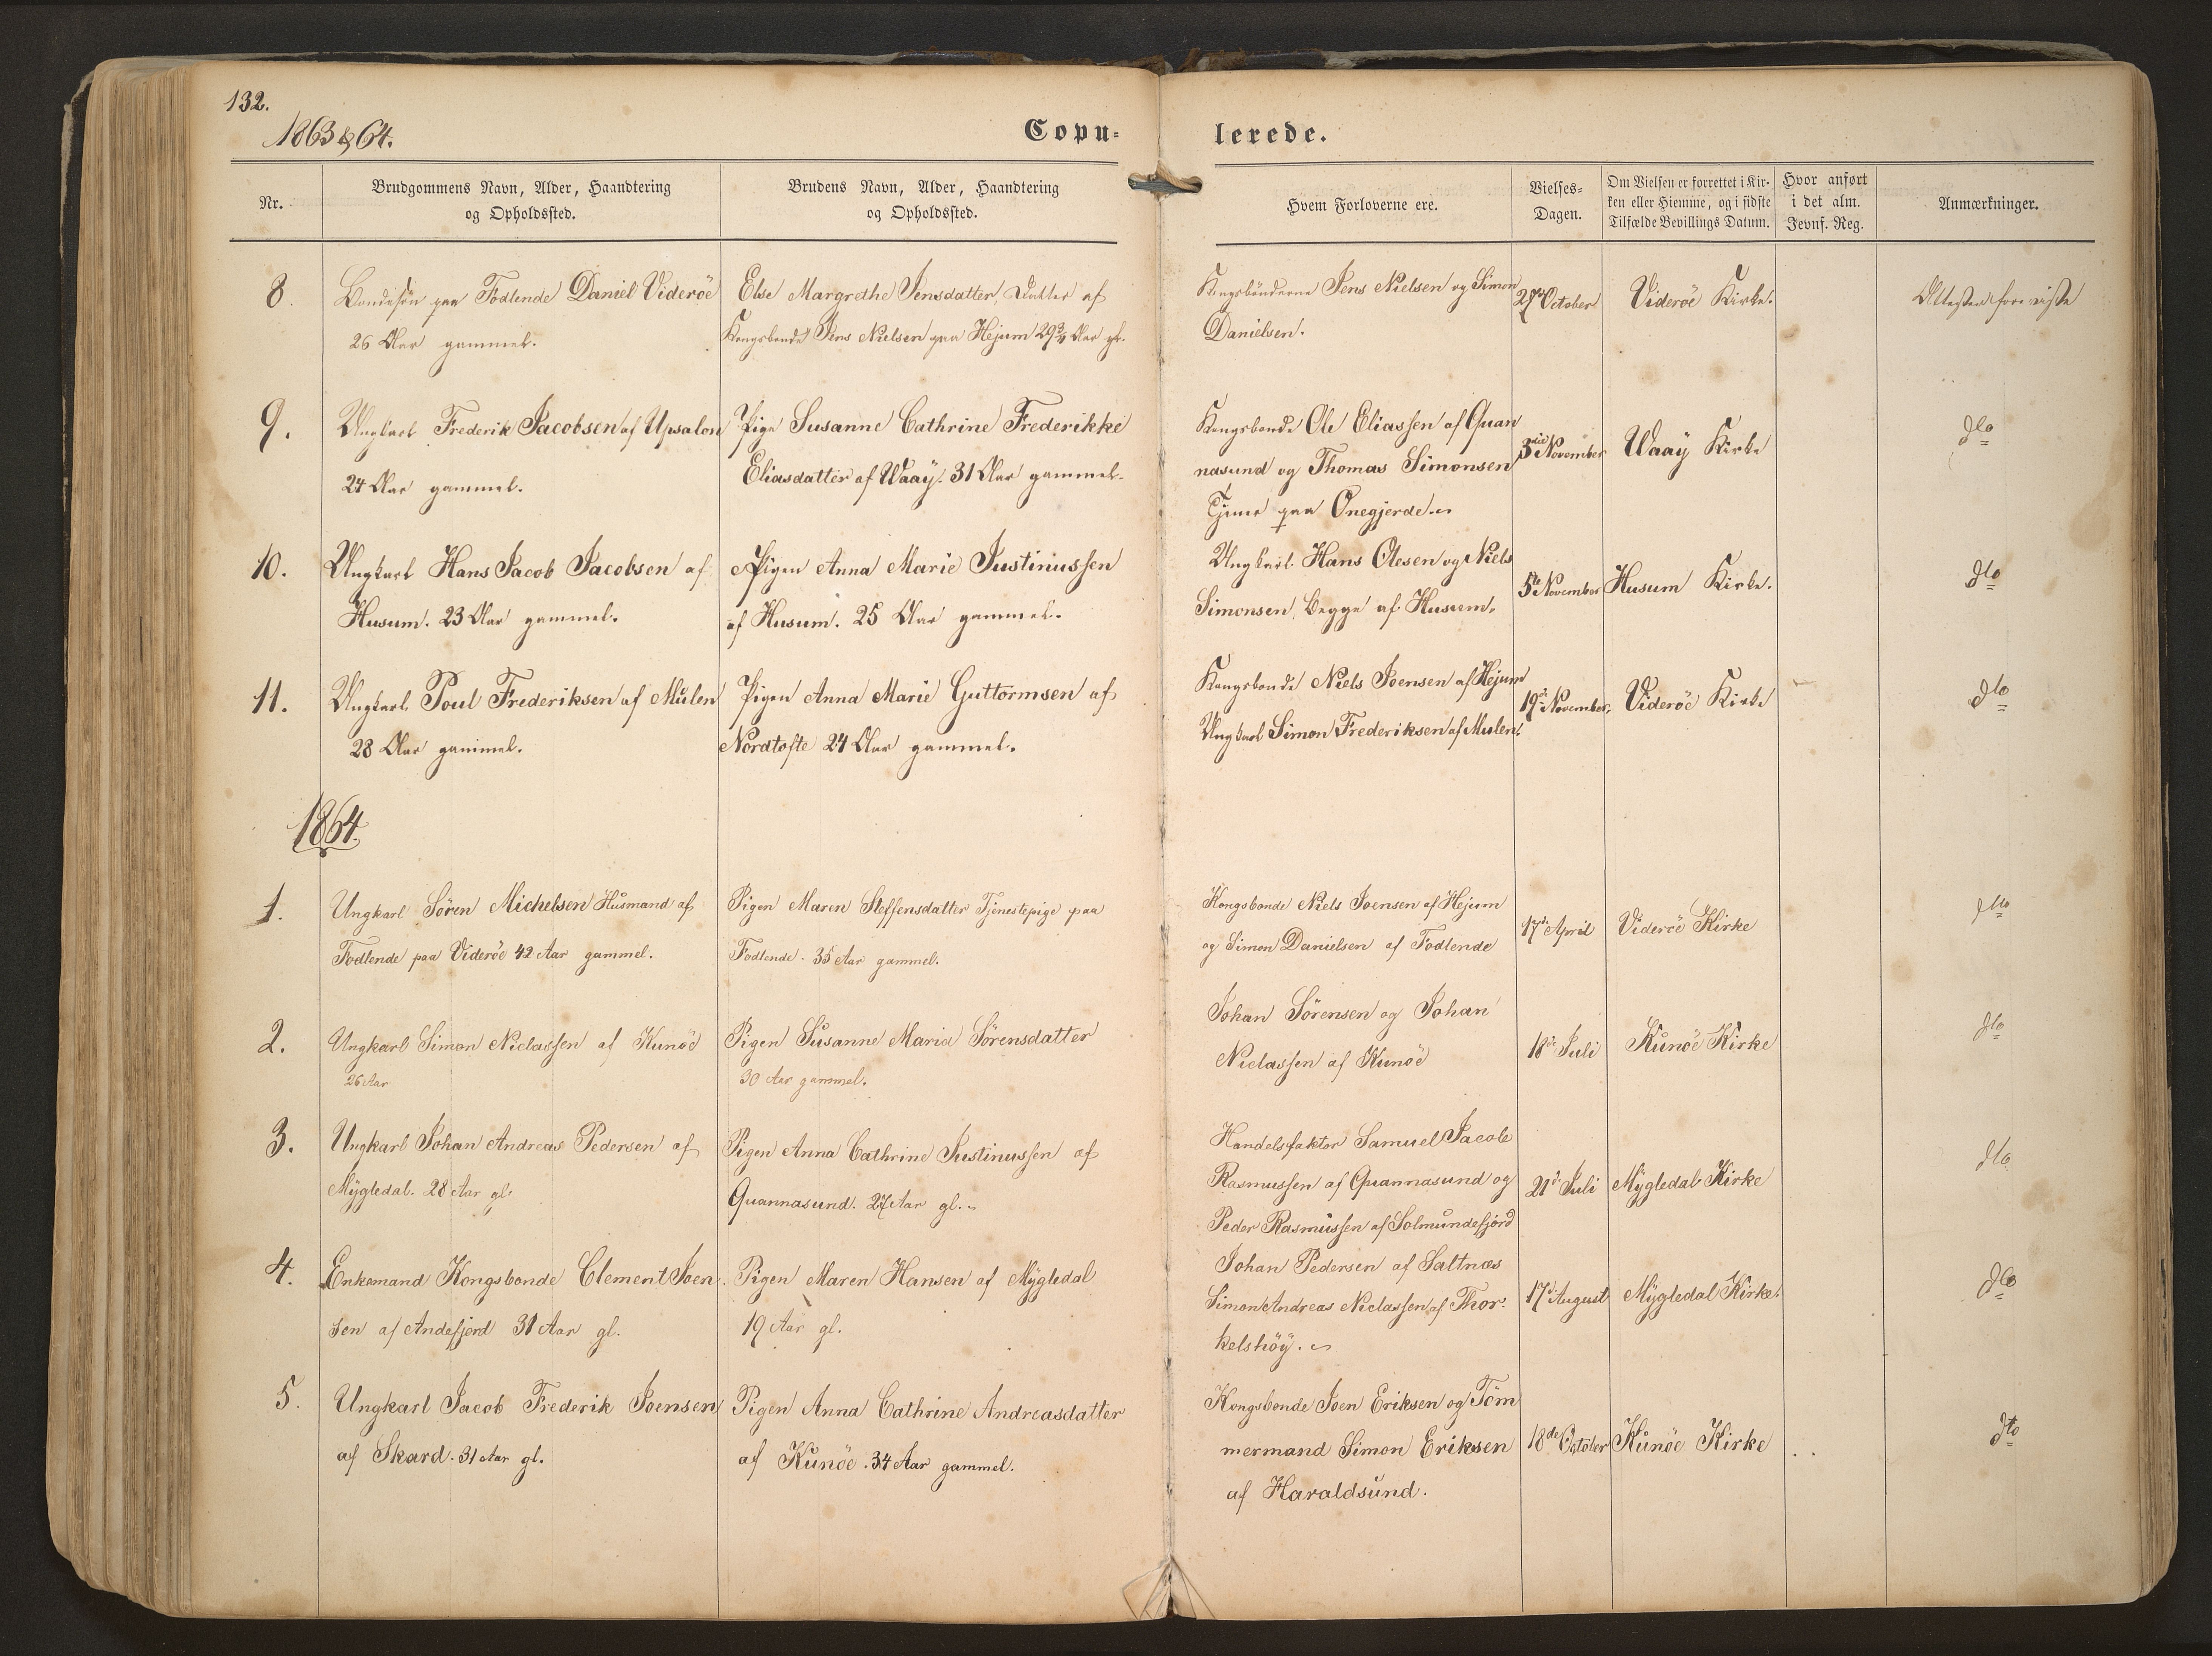 132.
1863 & 64.
Copu=
lerede.
Nr.
Brudgommens Navn, Alder, Haandtering
og Opholdssted.
Brudens Navn, Alder, Haandtering
og Opholdssted.
Hvem Forloverne ere.
Vielses=
Dagen.
Om Vielsen er forrettet i Kir-
ken eller Hiemme, og i sidste
Tilfælde Bevillings Datum.
Hvor anført
i det alm.
Jevnf. Reg.
Anmærkninger.
8.
Bondesön paa Fodlende Daniel Videröe
26 Aar gammel.
Else Margrethe Jensdatter, Datter af
Kongsbonde Jens Nielsen paa Hejum 29¾ Aar gl.
Kongsbönderne Jens Nielsen og Simon
Danielsen.
27de October
Videröe Kirke.
Attester foreviste
9.
Ungkarl Frederik Jacobsen af Upsalon
24 Aar gammel.
Pige Susanne Cathrine Frederikke
Eliasdatter af Waay. 31 Aar gammel.
Kongsbonde Ole Eliassen af Quan
nasund og Thomas Simonsen
Tjener paa Önegjerde.
3die November
Waay Kirke
dto
10.
Ungkarl Hans Jacob Jacobsen af
Husum. 23 Aar gammel.
Pigen Anna Marie Justinussen
af Husum. 25 Aar gammel.
Ungkarl Hans Olesen og Niels
Simonsen, begge af Husum.
5te November
Husum Kirke.
dto
11.
Ungkarl Poul Frederiksen af Mulen
28 Aar gammel.
Pigen Anna Marie Guttormsen af
Nordtofte 24 Aar gammel.
Kongsbonde Niels Joensen af Hejum
Ungkarl Simon Frederiksen af Mulen.
19de November.
Videröe Kirke
dto
1864.
1.
Ungkarl Sören Michelsen Husmand af
Fodlende paa Videröe 42 Aar gammel.
Pigen Maren Steffensdatter Tjenestepige paa
Fodlende. 35 Aar gammel.
Kongsbonde Niels Joensen af Hejum
og Simon Danielsen af Fodlende
17de April
Videröe Kirke
dto
2.
Ungkarl Simon Niclassen af Kunöe
26 Aar
Pigen Susanne Maria Sörensdatter
30 Aar gammel.
Johan Sörensen og Johan
Niclassen af Kunöe
18de Juli
Kunöe Kirke
dto
3.
Ungkarl Johan Andreas Pedersen af
Mygledal. 28 Aar gl.
Pigen Anna Cathrine Justinussen af
Quannasund. 27 Aar gl.
Handelsfaktor Samuel Jacob
Rasmussen af Quannasund og
Peder Rasmussen af Solmundefjord
21de Juli
Mygledal Kirke
dto
4.
Enkemand Kongsbonde Clement Joen
sen af Andefjord 31 Aar gl.
Pigen Maren Hansen af Mygledal
19 Aar gl.
Johan Pedersen af Saltnæs
Simon Andreas Niclassen af Thor.
kelshöy.
17de August
Mygledal Kirke.
dto
5.
Ungkarl Jacob Frederik Joensen
af Skard. 31 Aar gl.
Pigen Anna Cathrine Andreasdatter
af Kunöe. 34 Aar gammel.
Kongsbonde Joen Eriksen og Töm
mermand Simon Eriksen
af Haraldsund.
18de October
Kunöe Kirke
dto